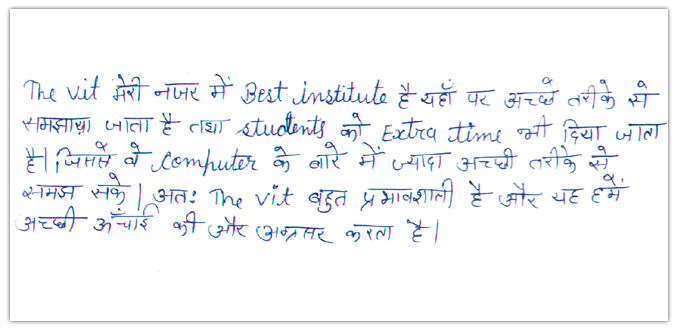 The vit मेरी नजर में Best institute है यहाँ पर अच्छे तरीके से
समझाया जाता है तथा students को Extra time भी दिया जाता
है। जिससे वे computer के बारे में ज्यादा अच्छी तरीके से
समझ सके। अतः The vit बहुत प्रभावशाली है और यह हमें
अच्छी ऊँचाई की और अग्रसर करता है।